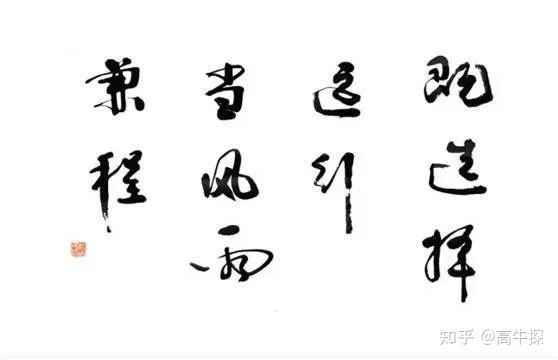 既选择
远行
当风雨
兼程
知乎 @高牛探